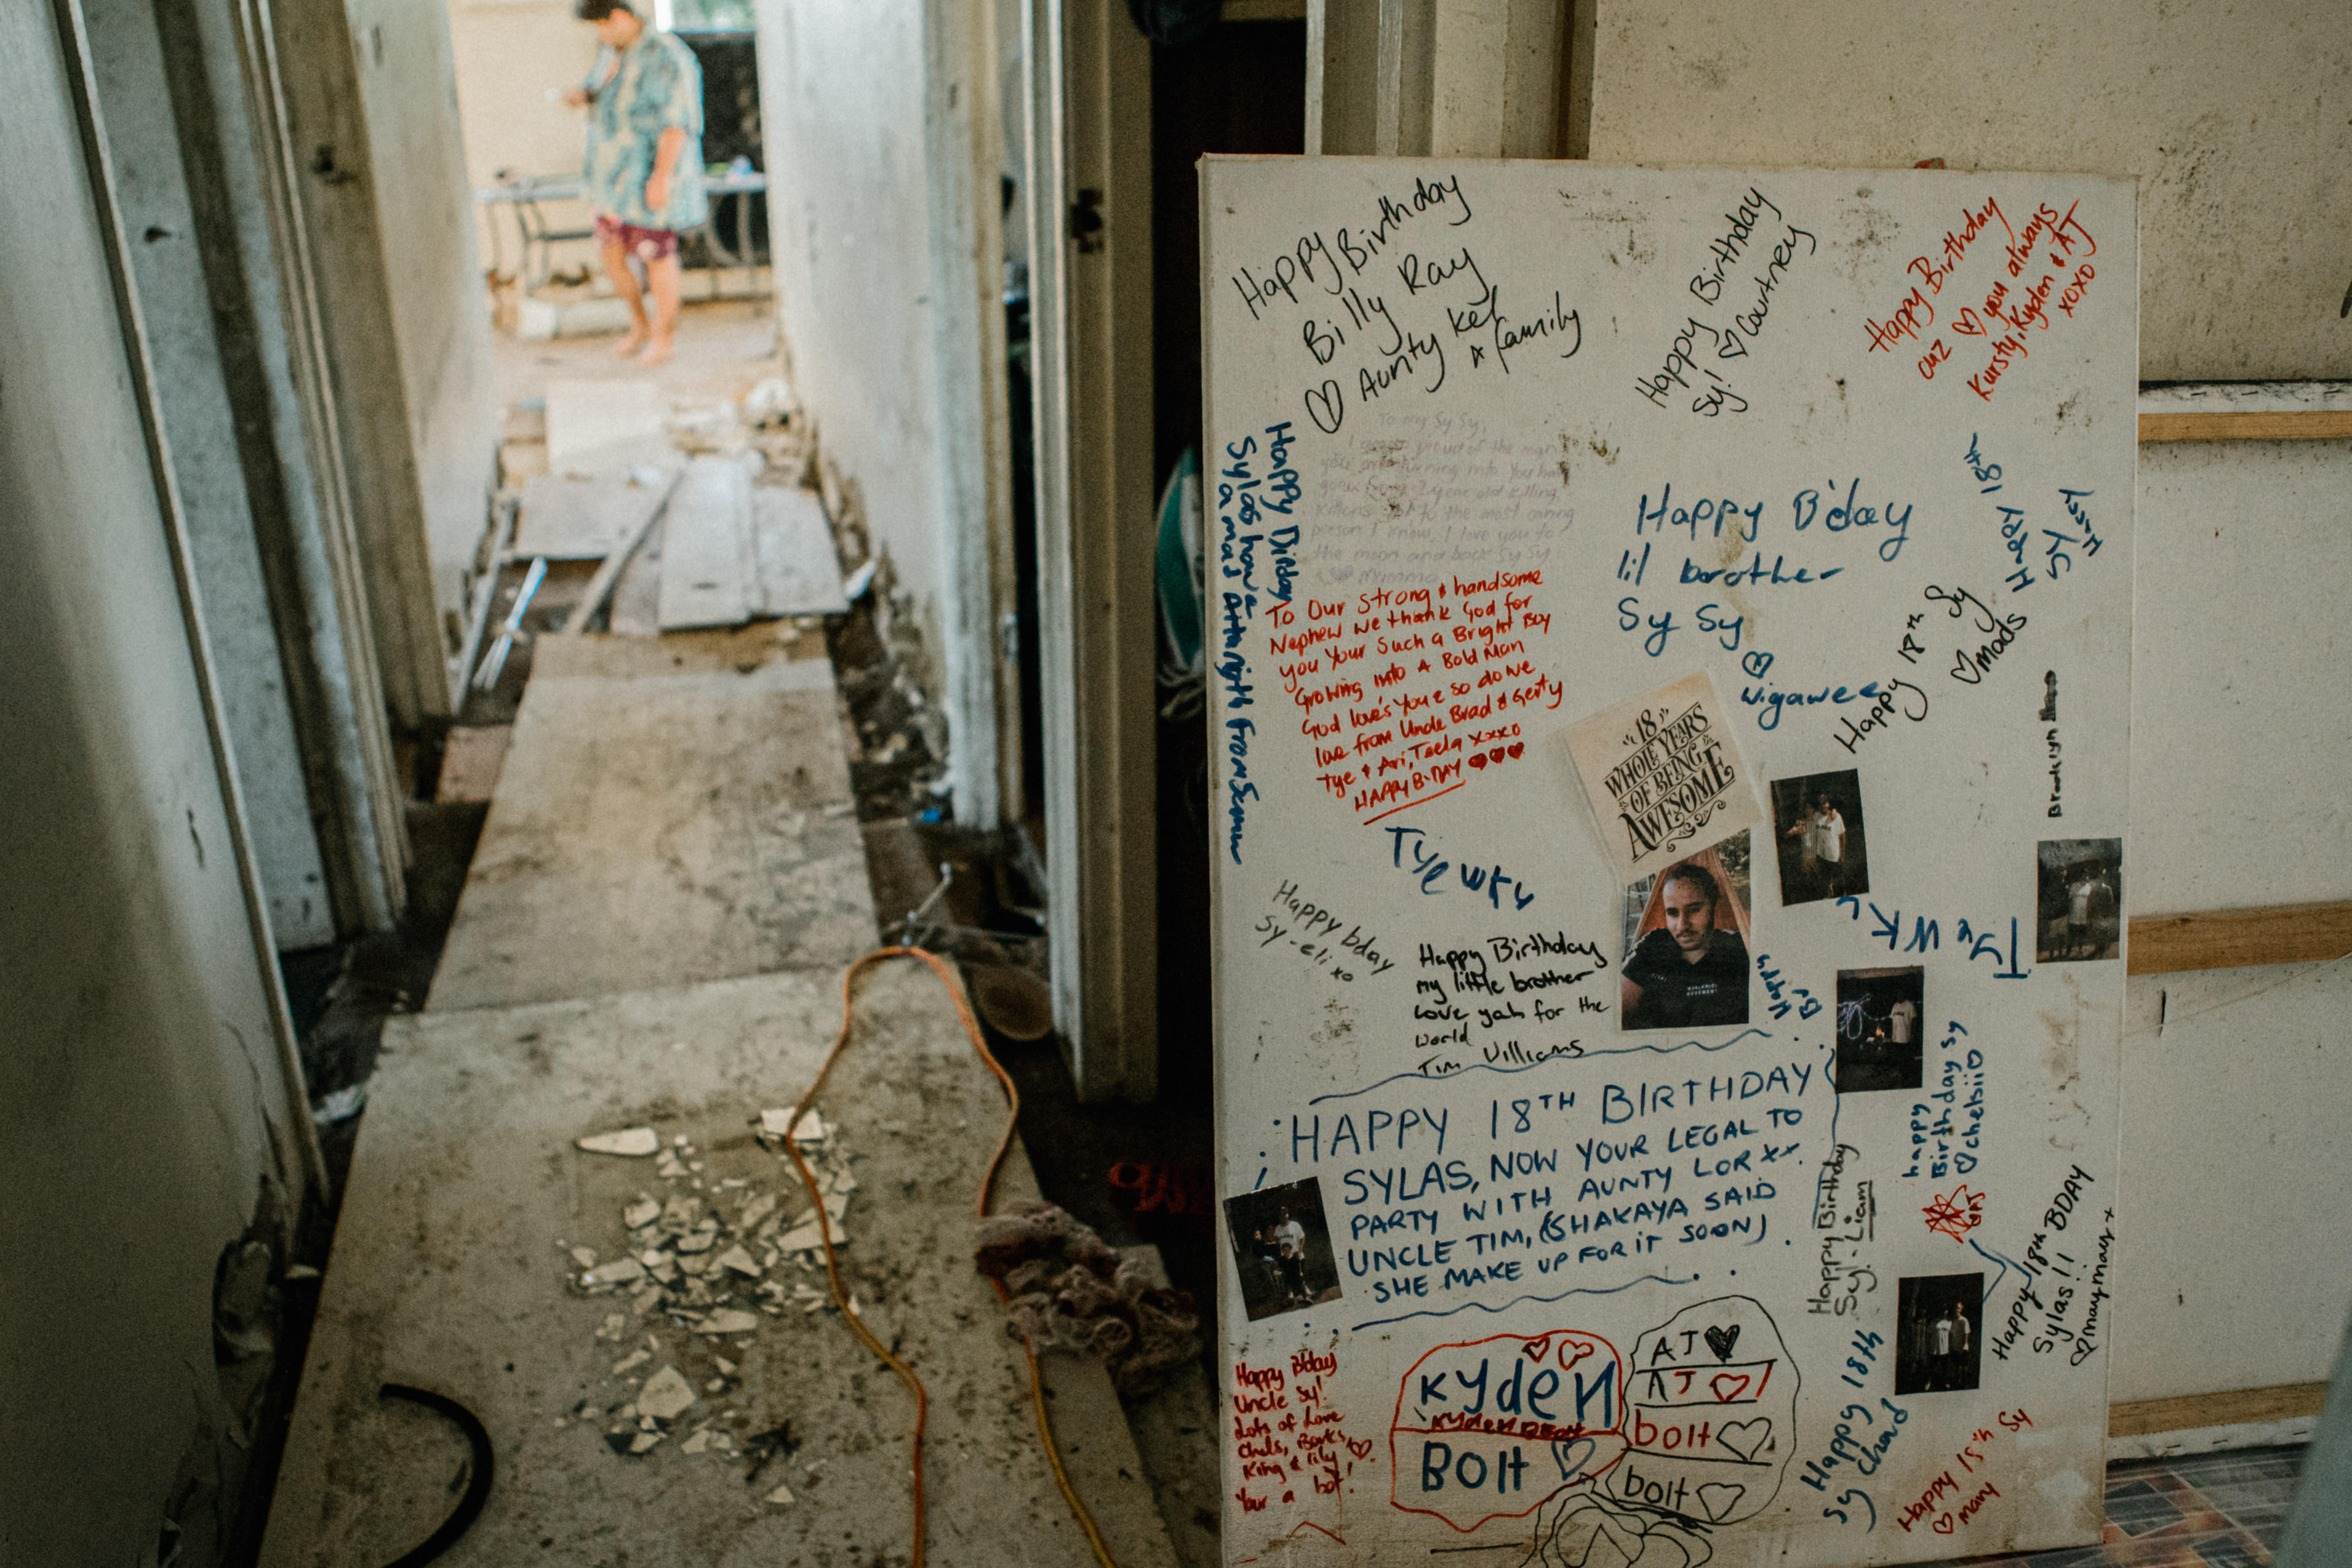 Happy Birthday
Billy Ray
Aunty Kel
& family
Happy Birthday
Sy! Courtney
Happy Birthday
cuz you always
Kursty, Kyden & AJ
xoxo
To my Sy Sy,
proud of the man
you are turning into. You have
killing
kittens to the most caring
person I know. I love you to
the moon and back Sy Sy
Mumma
Happy Birday
Sylas have
a mad
From
To Our Strong & handsome
Nephew we thank God for
you Your Such a Bright Boy
Growing into A Bold Man
God love's You & so do we
love from Uncle Brad & Gerty
Tye & Ari, Taela xxxo
HAPPY B-DAY
Happy B'day
lil brother
Sy Sy
wigawee
HAPPY 18th
SY
Happy 18th Sy
mads
Brooklyn
"18"
WHOLE YEARS
OF BEING
AWESOME
Happy bday
Sy - eli xo
Happy Birthday
my little brother
Love yah for the
World
Tim Williams
Happy
HAPPY 18TH BIRTHDAY
SYLAS, NOW YOUR LEGAL TO
PARTY WITH AUNTY LOR xx
UNCLE TIM, (SHAKAYA SAID
SHE MAKE UP FOR IT SOON)
happy
Birthday Sy
chebii
Happy Birthday
Sy! - Liam
Happy 18th BDAY
Sylas!!
Happy B'day
Uncle Sy!
Lots of Love
King & lily
Your a bot!
Kyden
BOlt
AJ
AJ
bolt
bolt
Happy 18th
Sy chad
Happy 18th Sy
mary